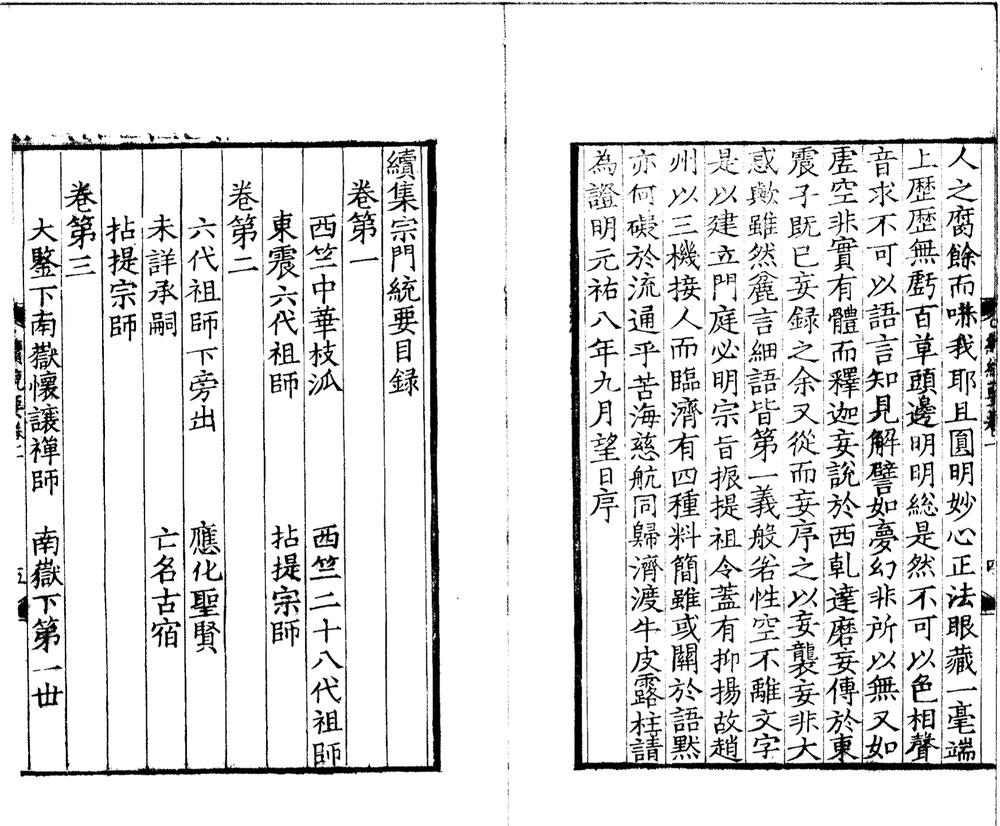 人之腐餘而啉我耶且圓明妙心正法眼藏一毫端
上歷歷無虧百草頭邊明明総是然不可以色相聲
音求不可以語言知見解譬如夢幻非所以無又如
虛空非實有體而釋迦妄說於西乹達磨妄傳於東
震子旣已妄録之余又從而妄序之以妄襲妄非大
惑歟雖然麄言細語皆第一義般若性空不離文字
是以建立門庭必明宗旨振提祖令蓋有抑揚故趙
州以三機接人而臨濟有四種料簡雖或關於語默
亦何礙於流通乎苦海慈航同歸濟渡牛皮露柱請
為證明元祐八年九月望日序
續集宗門統要目録
卷第一
西竺中華枝泒　西竺二十八代祖師
東震六代祖師　拈提宗師
卷第二
六代祖師下旁出　應化聖賢
未詳承嗣　亡名古宿
拈提宗師
卷第三
大鑒下南嶽懷讓禪師　南嶽下第一世